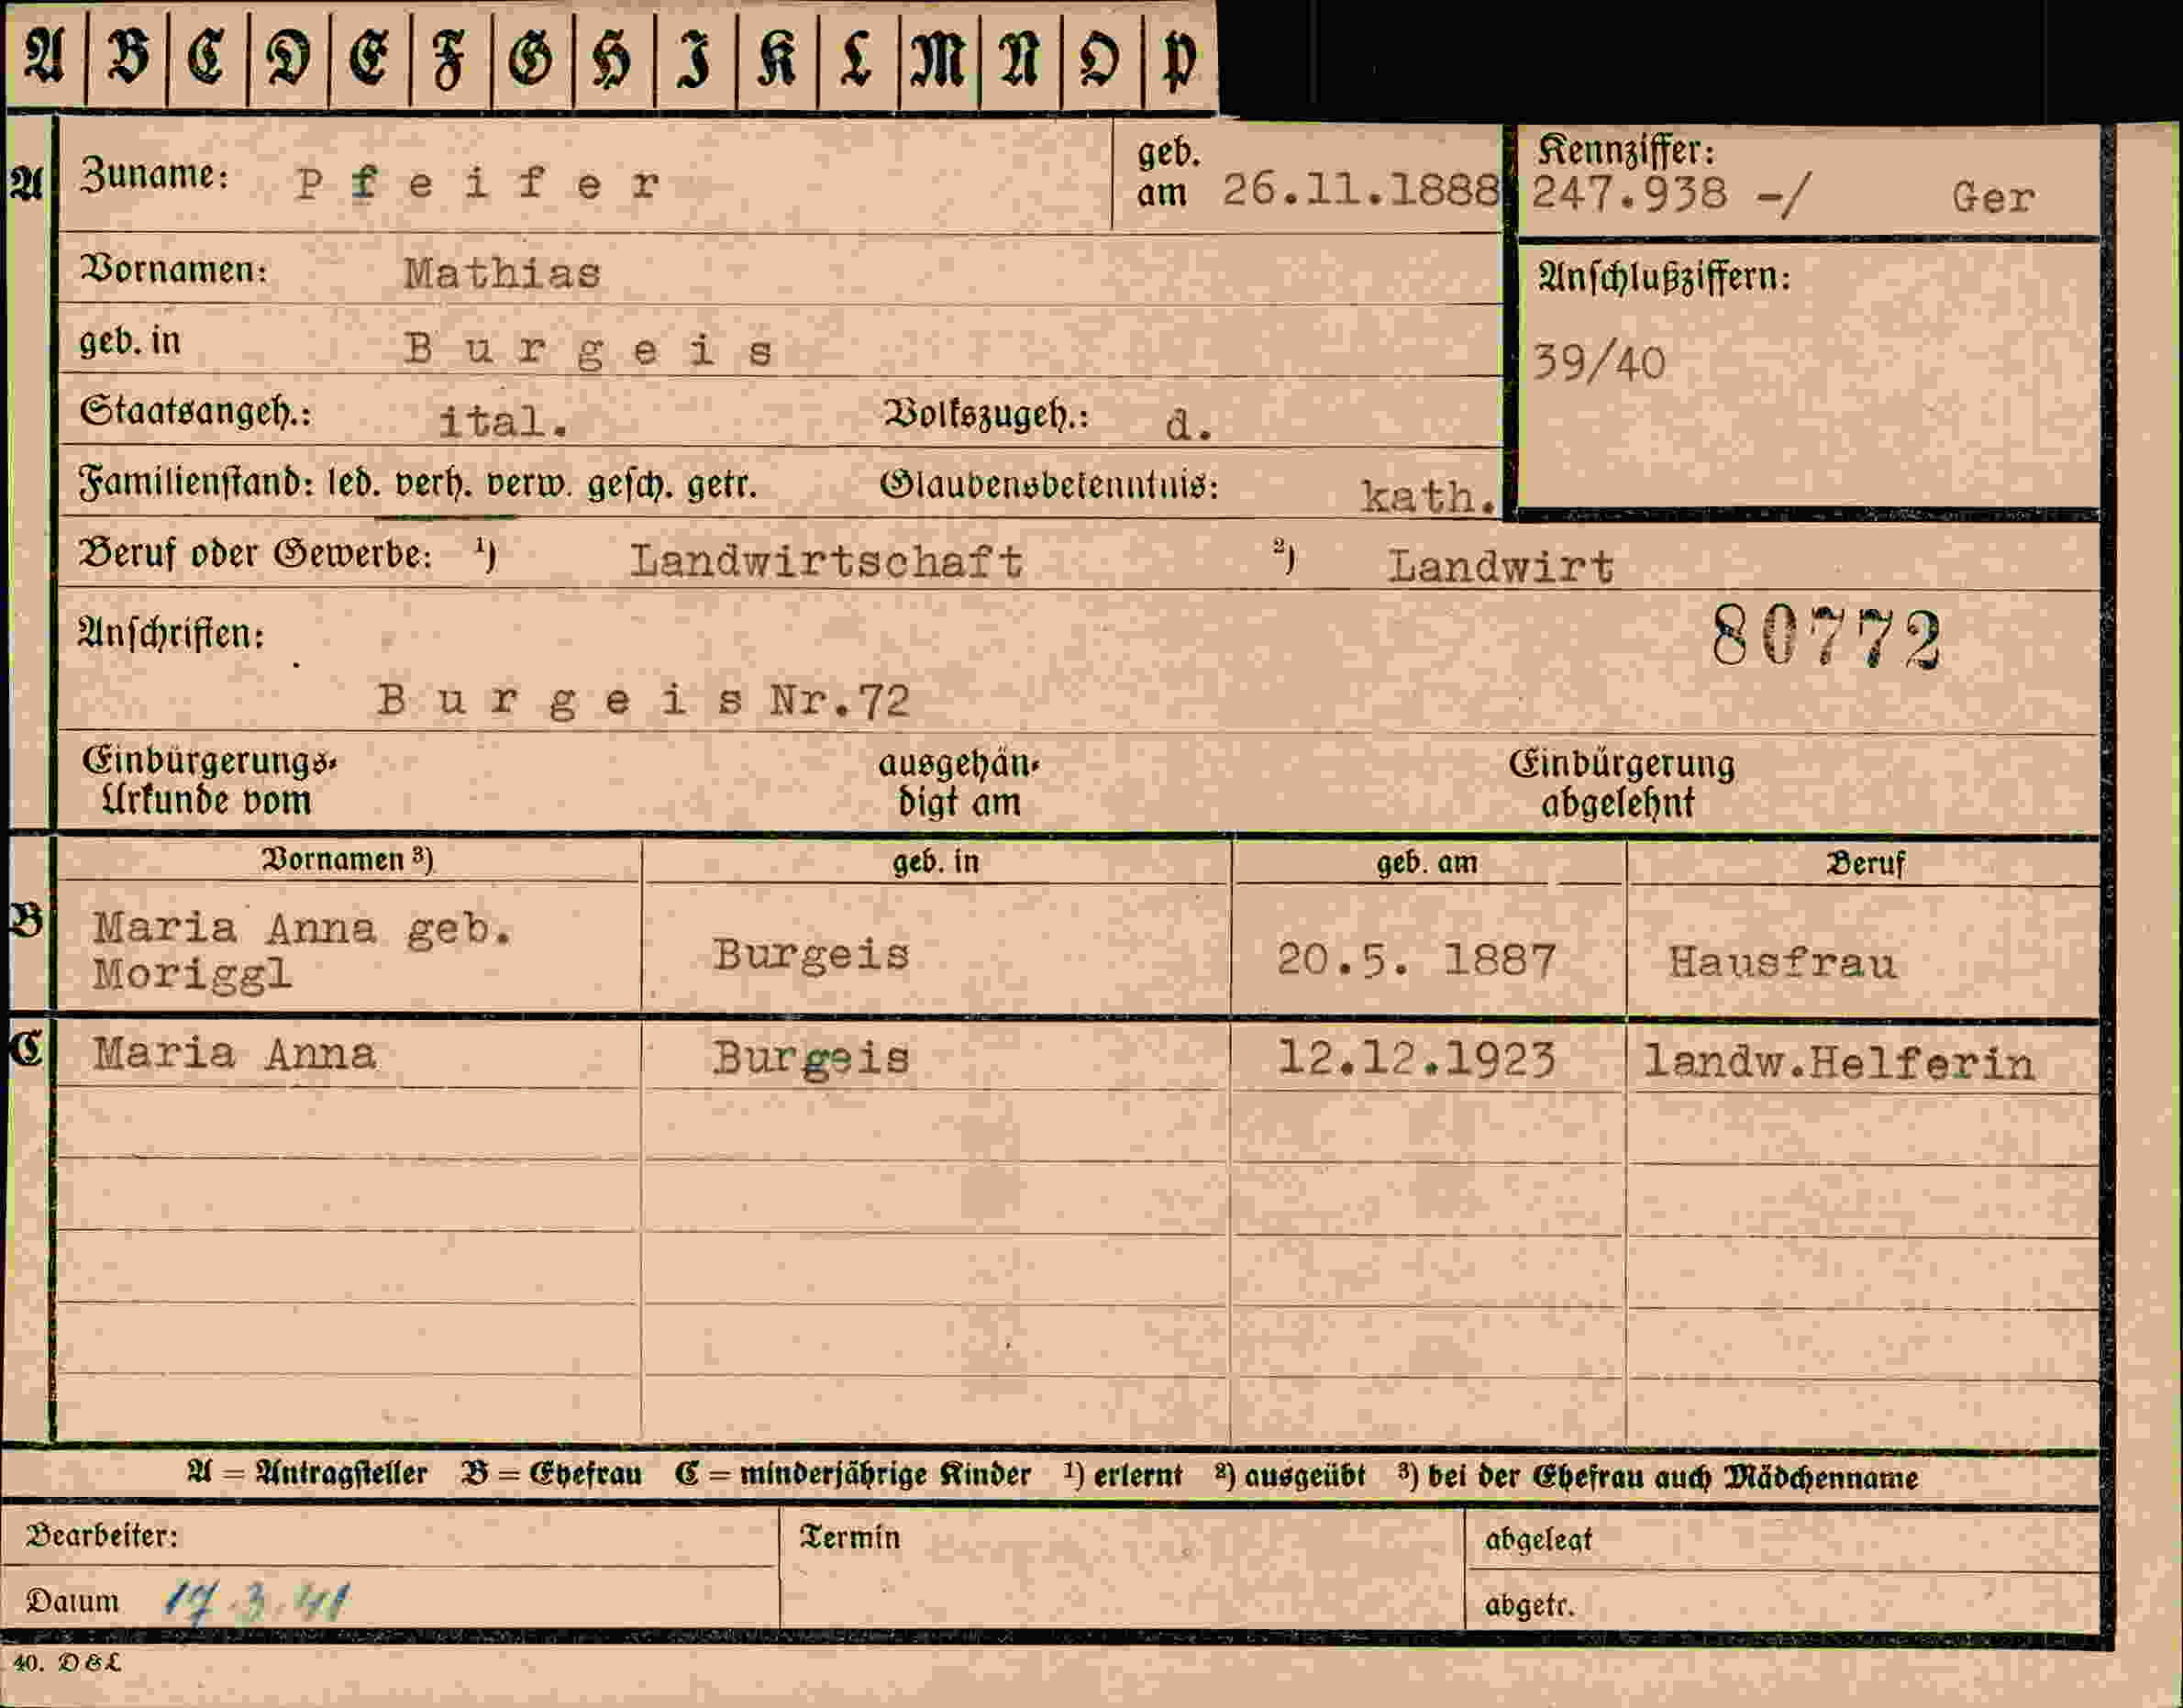 A B C D E F G H I K L M N O P
A Zuname: Pfeifer geb. am 26.11.1888 Kennziffer: 247.938 -/ Ger
Vornamen: Mathias Anschlußziffern:
geb. in Burgeis 39/40
Staatsangeh.: ital. Volkszugeh.: d.
Familienstand: led. verh. verw. gesch. getr. Glaubensbekenntnis: kath.
Beruf oder Gewerbe: ¹) Landwirtschaft ²) Landwirt
Anschriften: 80772
Burgeis Nr.72
Einbürgerungs- ausgehän- Einbürgerung
Urkunde vom digt am abgelehnt
Vornamen ³) geb. in geb. am Beruf
B Maria Anna geb. Moriggl Burgeis 20.5. 1887 Hausfrau
C Maria Anna Burgeis 12.12.1923 landw.Helferin
A = Antragsteller B = Ehefrau C = minderjährige Kinder ¹) erlernt ²) ausgeübt ³) bei der Ehefrau auch Mädchenname
Bearbeiter: Termin abgelegt
Datum 17.3.41 abgetr.
40. D&L